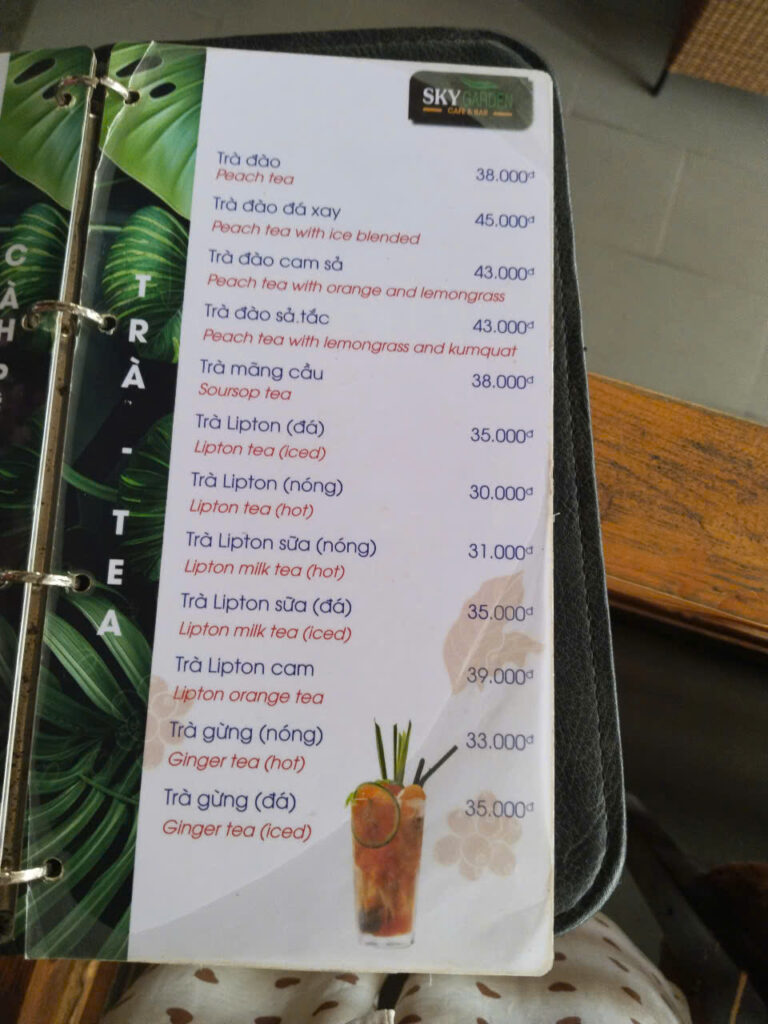 SKY GARDEN
CAFE & BAR
TRÀ - TEA
Trà đào
Peach tea
38.000đ
Trà đào đá xay
Peach tea with ice blended
45.000đ
Trà đào cam sả
Peach tea with orange and lemongrass
43.000đ
Trà đào sả.tắc
Peach tea with lemongrass and kumquat
43.000đ
Trà mãng cầu
Soursop tea
38.000đ
Trà Lipton (đá)
Lipton tea (iced)
35.000đ
Trà Lipton (nóng)
Lipton tea (hot)
30.000đ
Trà Lipton sữa (nóng)
Lipton milk tea (hot)
31.000đ
Trà Lipton sữa (đá)
Lipton milk tea (iced)
35.000đ
Trà Lipton cam
Lipton orange tea
39.000đ
Trà gừng (nóng)
Ginger tea (hot)
33.000đ
Trà gừng (đá)
Ginger tea (iced)
35.000đ